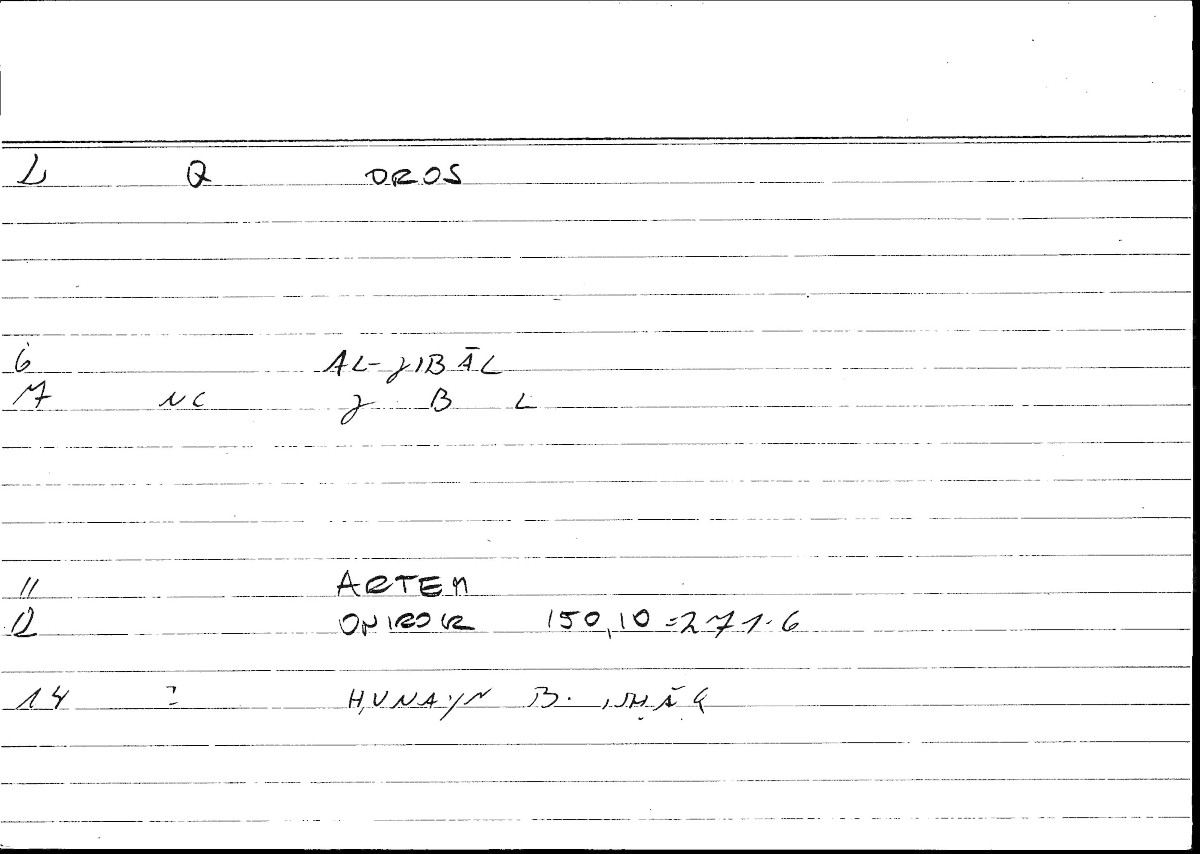 1 Q OROS
6 AL-JIBĀL
7 NC J B L
11 ARTEM
12 ONIROCR 150,10=271.6
14 : ḤUNAYN B. ISḤĀQ